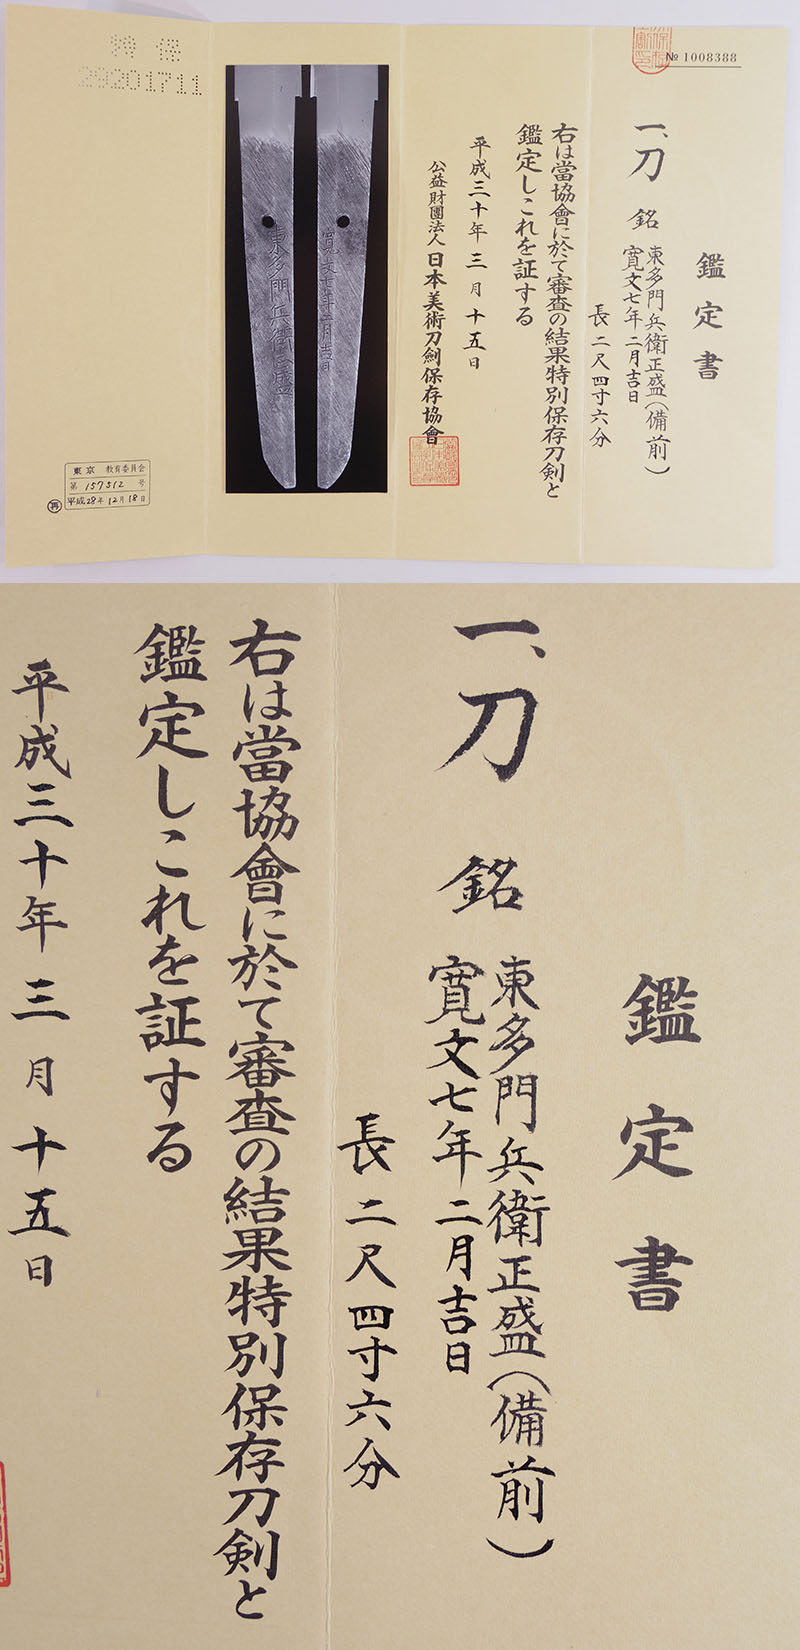 № 1008388
鑑定書
一、刀 銘 東多門兵衛正盛(備前)
寛文七年二月吉日
長二尺四寸六分
右は當協會に於て審査の結果特別保存刀剣と
鑑定しこれを証する
平成三十年三月十五日
公益財團法人 日本美術刀劍保存協會
寛文七年二月吉日
東多門兵衛正盛
特保
29201711
東京 教育委員会
第 157512 号
平成28年12月18日
再
鑑定書
一、刀 銘 東多門兵衛正盛(備前)
寛文七年二月吉日
長二尺四寸六分
右は當協會に於て審査の結果特別保存刀剣と
鑑定しこれを証する
平成三十年三月十五日